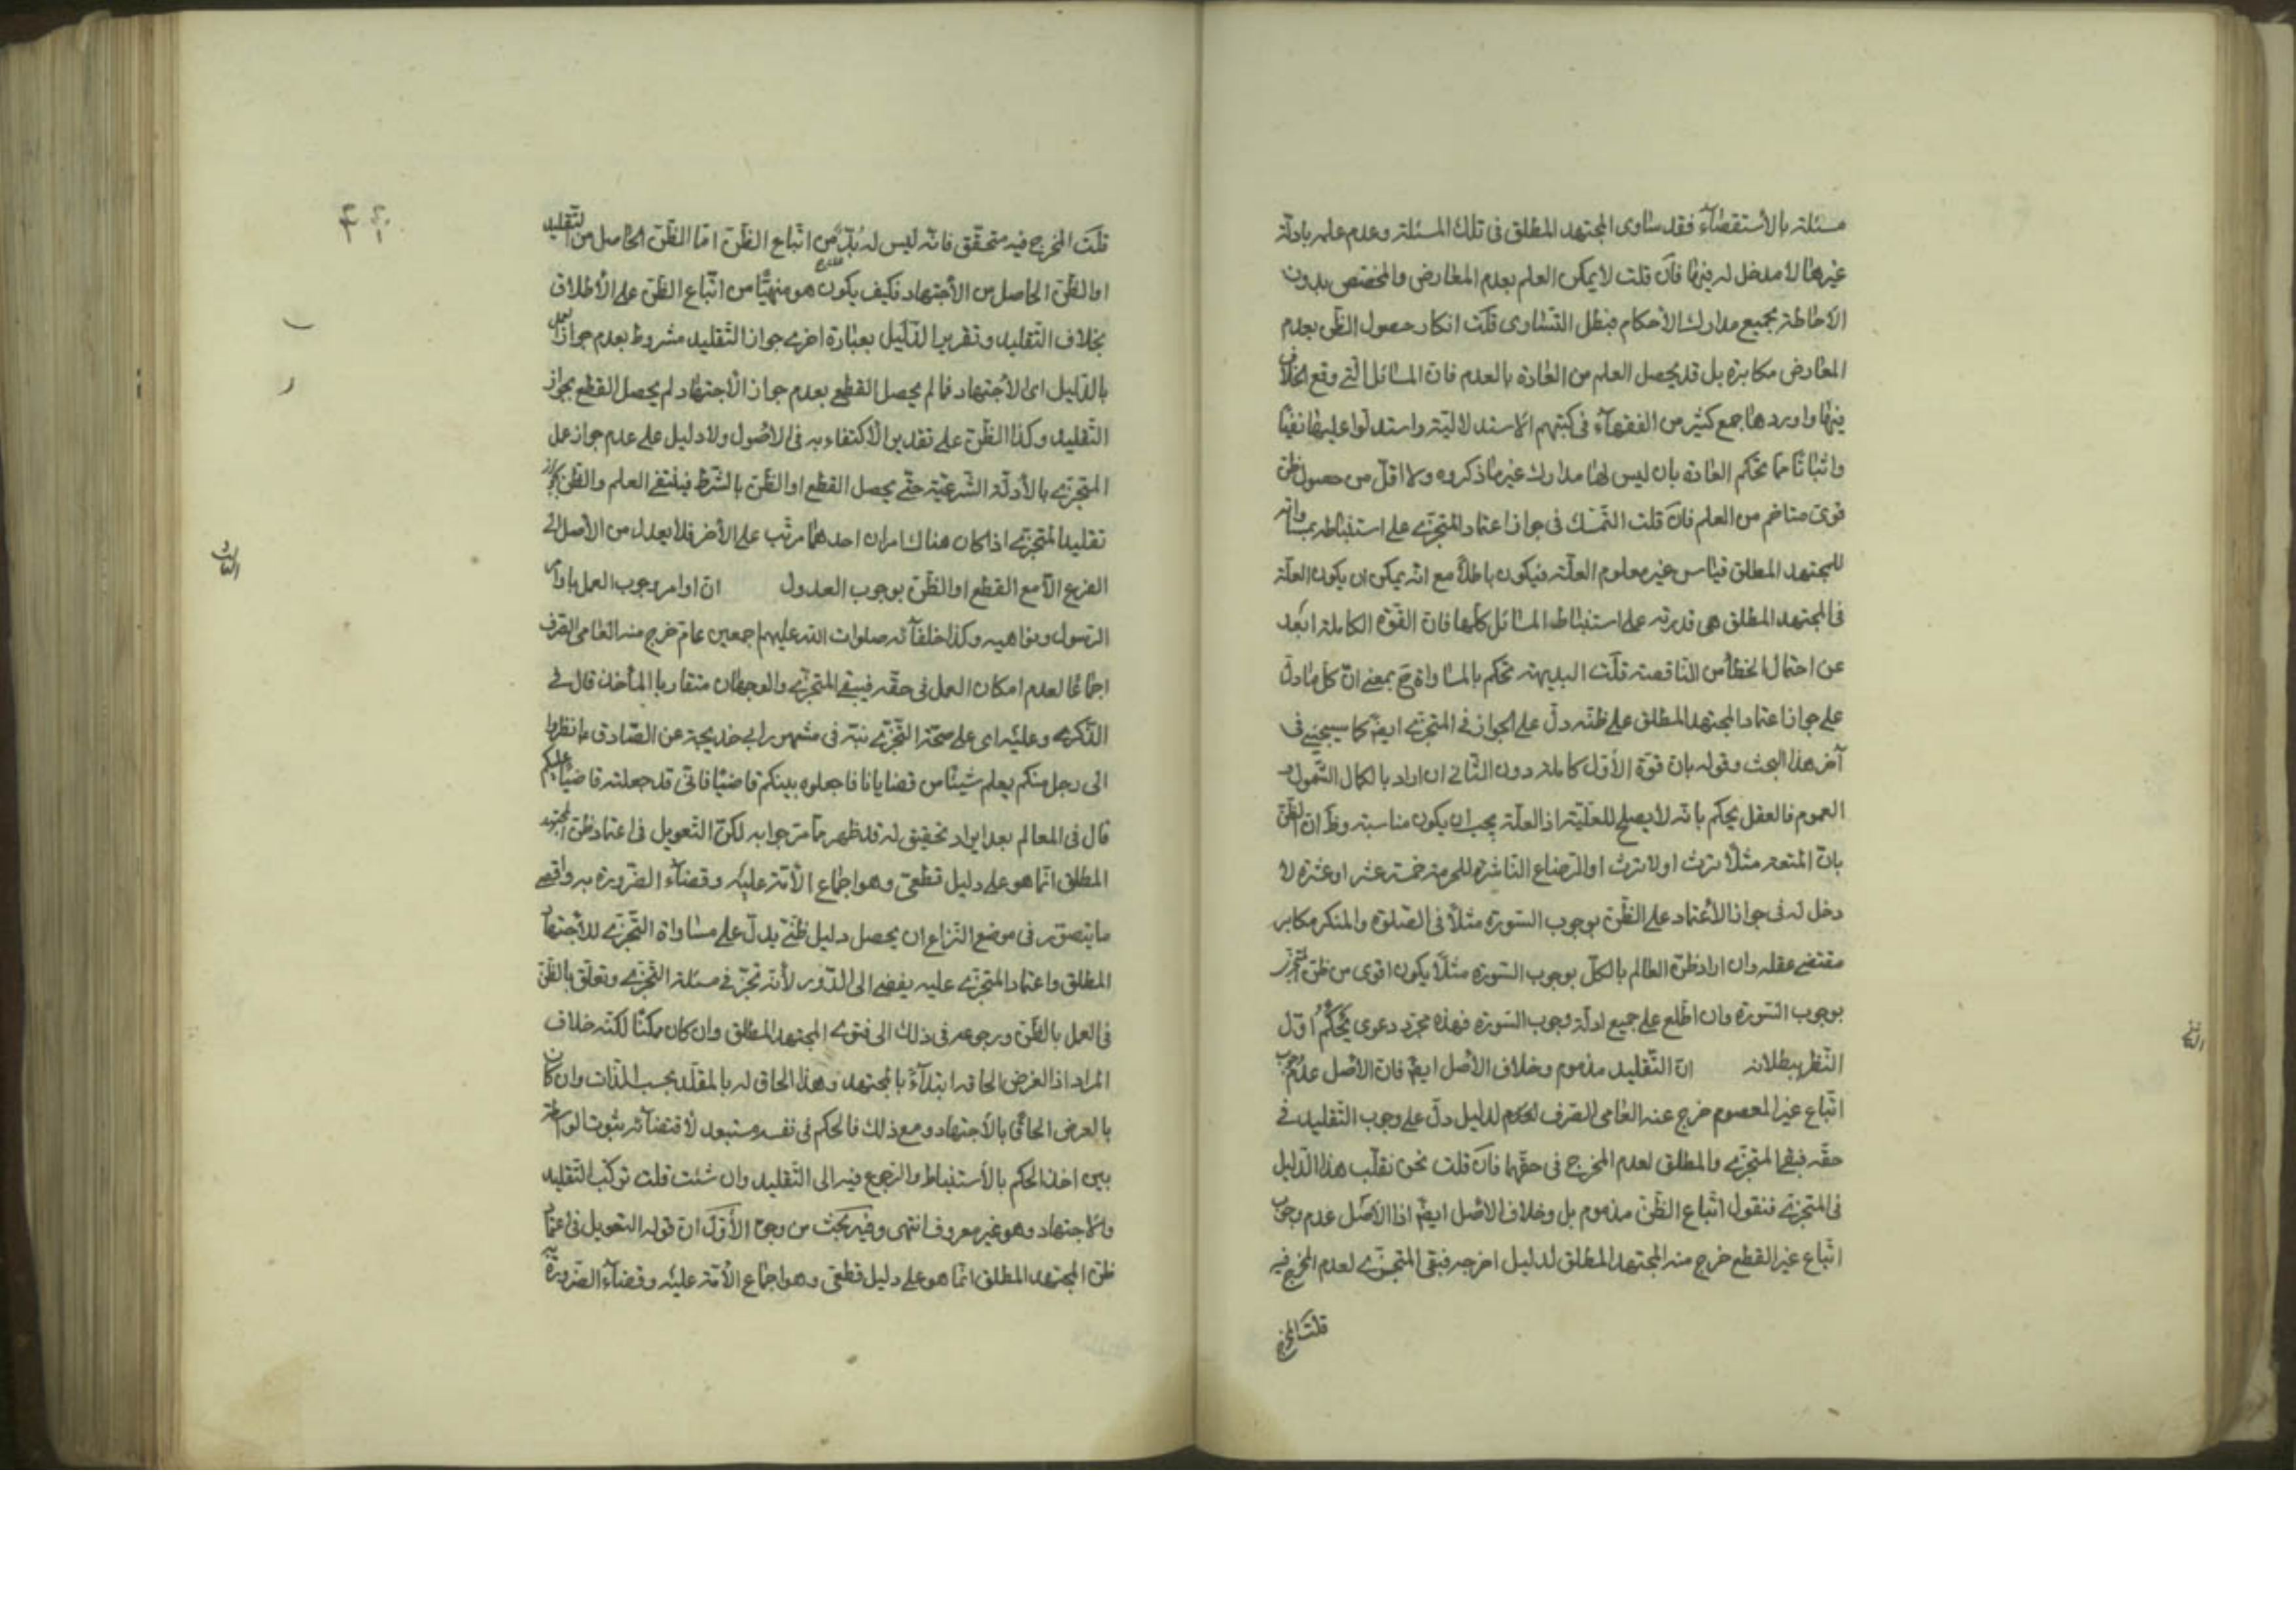 مسئلة بالاستقصاء فقد ساوى المجتهد المطلق فى تلك المسئلة وعدم علمه بادلّة
غيرها لا مدخل له فيها فان قلت لا يمكن العلم بعدم المعارض والمخصص بدون
الاحاطة بجميع مدارك الاحكام فبطل التساوى قلت انكار حصول الظن بعدم
المعارض مكابرة بل قد يحصل العلم من العادة بالعدم فان المسائل التى وقع الخلاف
فيها واوردها جمع كثير من الفقهاء فى كتبهم الاستدلالية واستدلوا عليها نفيا
واثباتا مما تحكم العادة بان ليس لها مدارك غير ما ذكروه ولا اقل من حصول ظن
قوى متاخم من العلم فان قلت التمسك فى جواز اعتماد المتجزى على استنباطه بمساواته
للمجتهد المطلق قياس غير معلوم العلّة فيكون باطلا مع انه يمكن ان يكون العلة
فى المجتهد المطلق هى قدرته على استنباط المسائل كلها فان القوة الكاملة ابعد
عن احتمال الخطأ من الناقصة قلت البديهة تحكم بالمساواة ح بمعنى ان كل ما دلّ
على جواز اعتماد المجتهد المطلق على ظنه دلّ على الجواز فى المتجزى ايضا كما سيجئ فى
آخر هذا البحث وقوله بان قوة الاول كاملة دون الثانى ان اراد بالكمال الشمول و
العموم فالعقل يحكم بانه لا يصلح للعلّية اذ العلّة يجب ان يكون مناسبة وظ ان الظن
بان المتعة مثلا ترث او لا ترث او الرضاع الناشرة للحرمة خمسة عشر او عشرة لا
دخل له فى جواز الاعتماد على الظن بوجوب السورة مثلا فى الصلوة والمنكر مكابر
مقتضى عقله وان اراد ظن العالم بالكل بوجوب السورة مثلا يكون اقوى من ظن المتجزى
بوجوب السورة وان اطلع على جميع ادلة وجوب السورة فهذه مجرد دعوى يحكم اول
النظر ببطلانه ان التقليد مذموم وخلاف الاصل ايضا فان الاصل عدم وجوب
اتّباع غير المعصوم خرج عنه العامى الصرف لدليل دلّ على وجوب التقليد فى
حقه فبقى المتجزى والمطلق لعدم المخرج فى حقهما فان قلت نحن نقلب هذا الدليل
فى المتجزى فنقول اتباع الظن مذموم بل وخلاف الاصل ايضا اذ الاصل عدم وجوب
اتّباع غير القطع خرج منه المجتهد المطلق لدليل اخرجه فبقى المتجزى لعدم المخرج فيه
قلت المخرج
قلت المخرج فيه متحقق فانه ليس له بدّ من اتّباع الظن اما الظن الحاصل من التقليد
او الظن الحاصل من الاجتهاد فكيف يكون هو منهيا من اتّباع الظن على الاطلاق
بخلاف التقليد وتقرير الدليل بعبارة اخرى جواز التقليد مشروط بعدم جواز العمل
بالدليل اى الاجتهاد فما لم يحصل القطع بعدم جواز الاجتهاد لم يحصل القطع بجواز
التقليد وكذا الظن على تقدير الاكتفاء به فى الاصول ولا دليل على عدم جواز عمل
المتجزى بالادلّة الشرعيّة حتى يحصل القطع او الظن بالشرط فينتفى العلم والظن بجواز
تقليد المتجزى اذا كان هناك امران احدهما مرتب على الآخر فلا يعدل من الاصل الى
الفرع الا مع القطع او الظن بوجوب العدول ان اوامر وجوب العمل باوامر
الرسول ونواهيه وكذا خلفائه صلوات الله عليهم اجمعين عام خرج منه العامى الصرف
اجماعا لعدم امكان العمل فى حقه فيبقى المتجزى والوجهان متقاربا المأخذ قال فى
الذكرى وعليه اى على صحّة التجزى نبّه فى مشهور ابى خديجة عن الصادق ع انظروا
الى رجل منكم يعلم شيئا من قضايانا فاجعلوه بينكم قاضيا فانى قد جعلته قاضيا عليكم
قال فى المعالم بعد ايراد تحقيق له قد ظهر مما مرّ جوابه لكن التعويل فى اعتماد ظن المجتهد
المطلق انما هو على دليل قطعى وهو اجماع الامّة عليه وقضاء الضرورة به واقصى
ما يتصور فى موضع النزاع ان يحصل دليل ظنّى يدلّ على مساواة التجزى للاجتهاد
المطلق واعتماد المتجزى عليه يفضى الى الدور لانه تجزّ فى مسئلة التجزى وتعلّق بالظن
فى العمل بالظن ورجوعه فى ذلك الى فتوى المجتهد المطلق وان كان ممكنا لكنه خلاف
المراد اذ الغرض الحاقه ابتداء بالمجتهد وهذا الحاق له بالمقلد بحسب الذات وان كان
بالعرض الحاقا بالاجتهاد ومع ذلك فالحكم فى نفسه مستبعد لاقتضائه ثبوت الواسطة
بين اخذ الحكم بالاستنباط والرجوع فيه الى التقليد وان شئت قلت تركب التقليد
والاجتهاد وهو غير معروف انتهى وفيه بحث من وجوه الاول ان قوله التعويل فى اعتماد
ظن المجتهد المطلق انما هو على دليل قطعى وهو اجماع الامّة عليه وقضاء الضرورة به